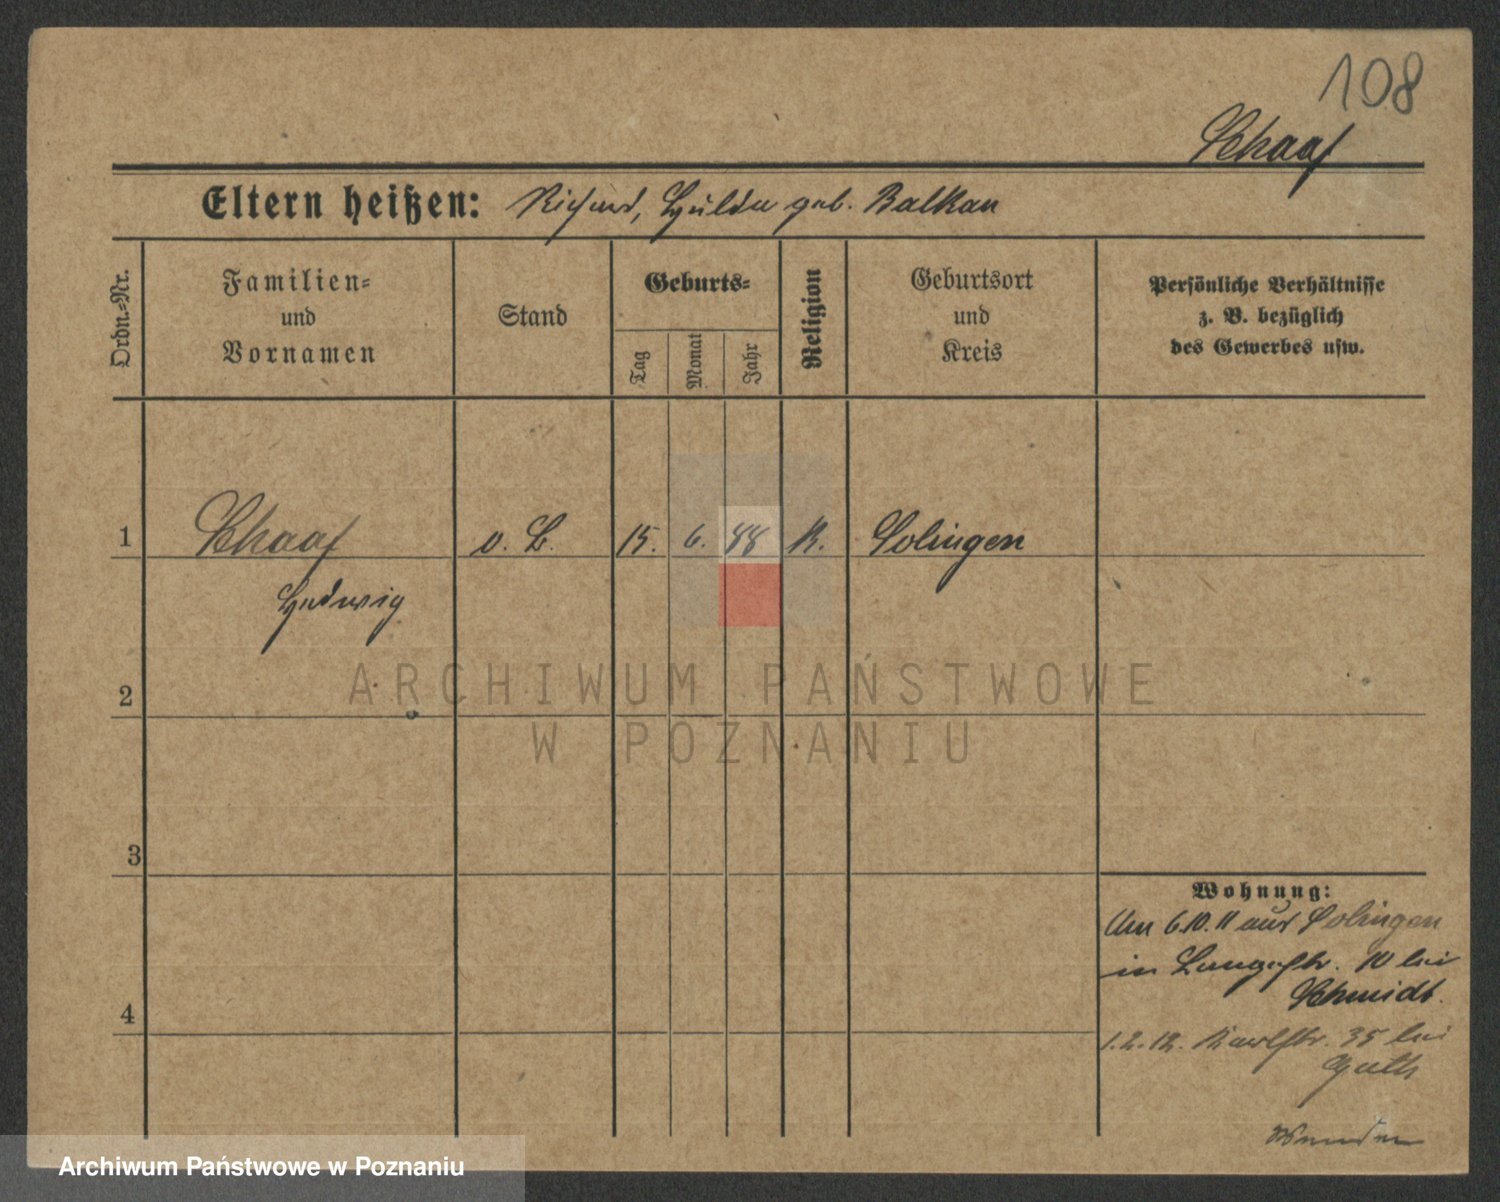 108
Schaaf
Eltern heißen: Richard, Hulda geb. Balkau
Ordn.=Nr.
Familien=
und
Vornamen
Stand
Geburts=
Tag
Monat
Jahr
Religion
Geburtsort
und
Kreis
Persönliche Verhältnisse
z. B. bezüglich
des Gewerbes usw.
1 Schaaf 15. 6. 88 K. Solingen
Ludwig
2
ARCHIWUM PAŃSTWOWE
W POZNANIU
3
Wohnung:
Am 6.10.11 aus Solingen
in Langestr. 10 bei
Schmidt.
4
1.2.12. Karlstr. 35 bei
Guth
Wenden
Archiwum Państwowe w Poznaniu